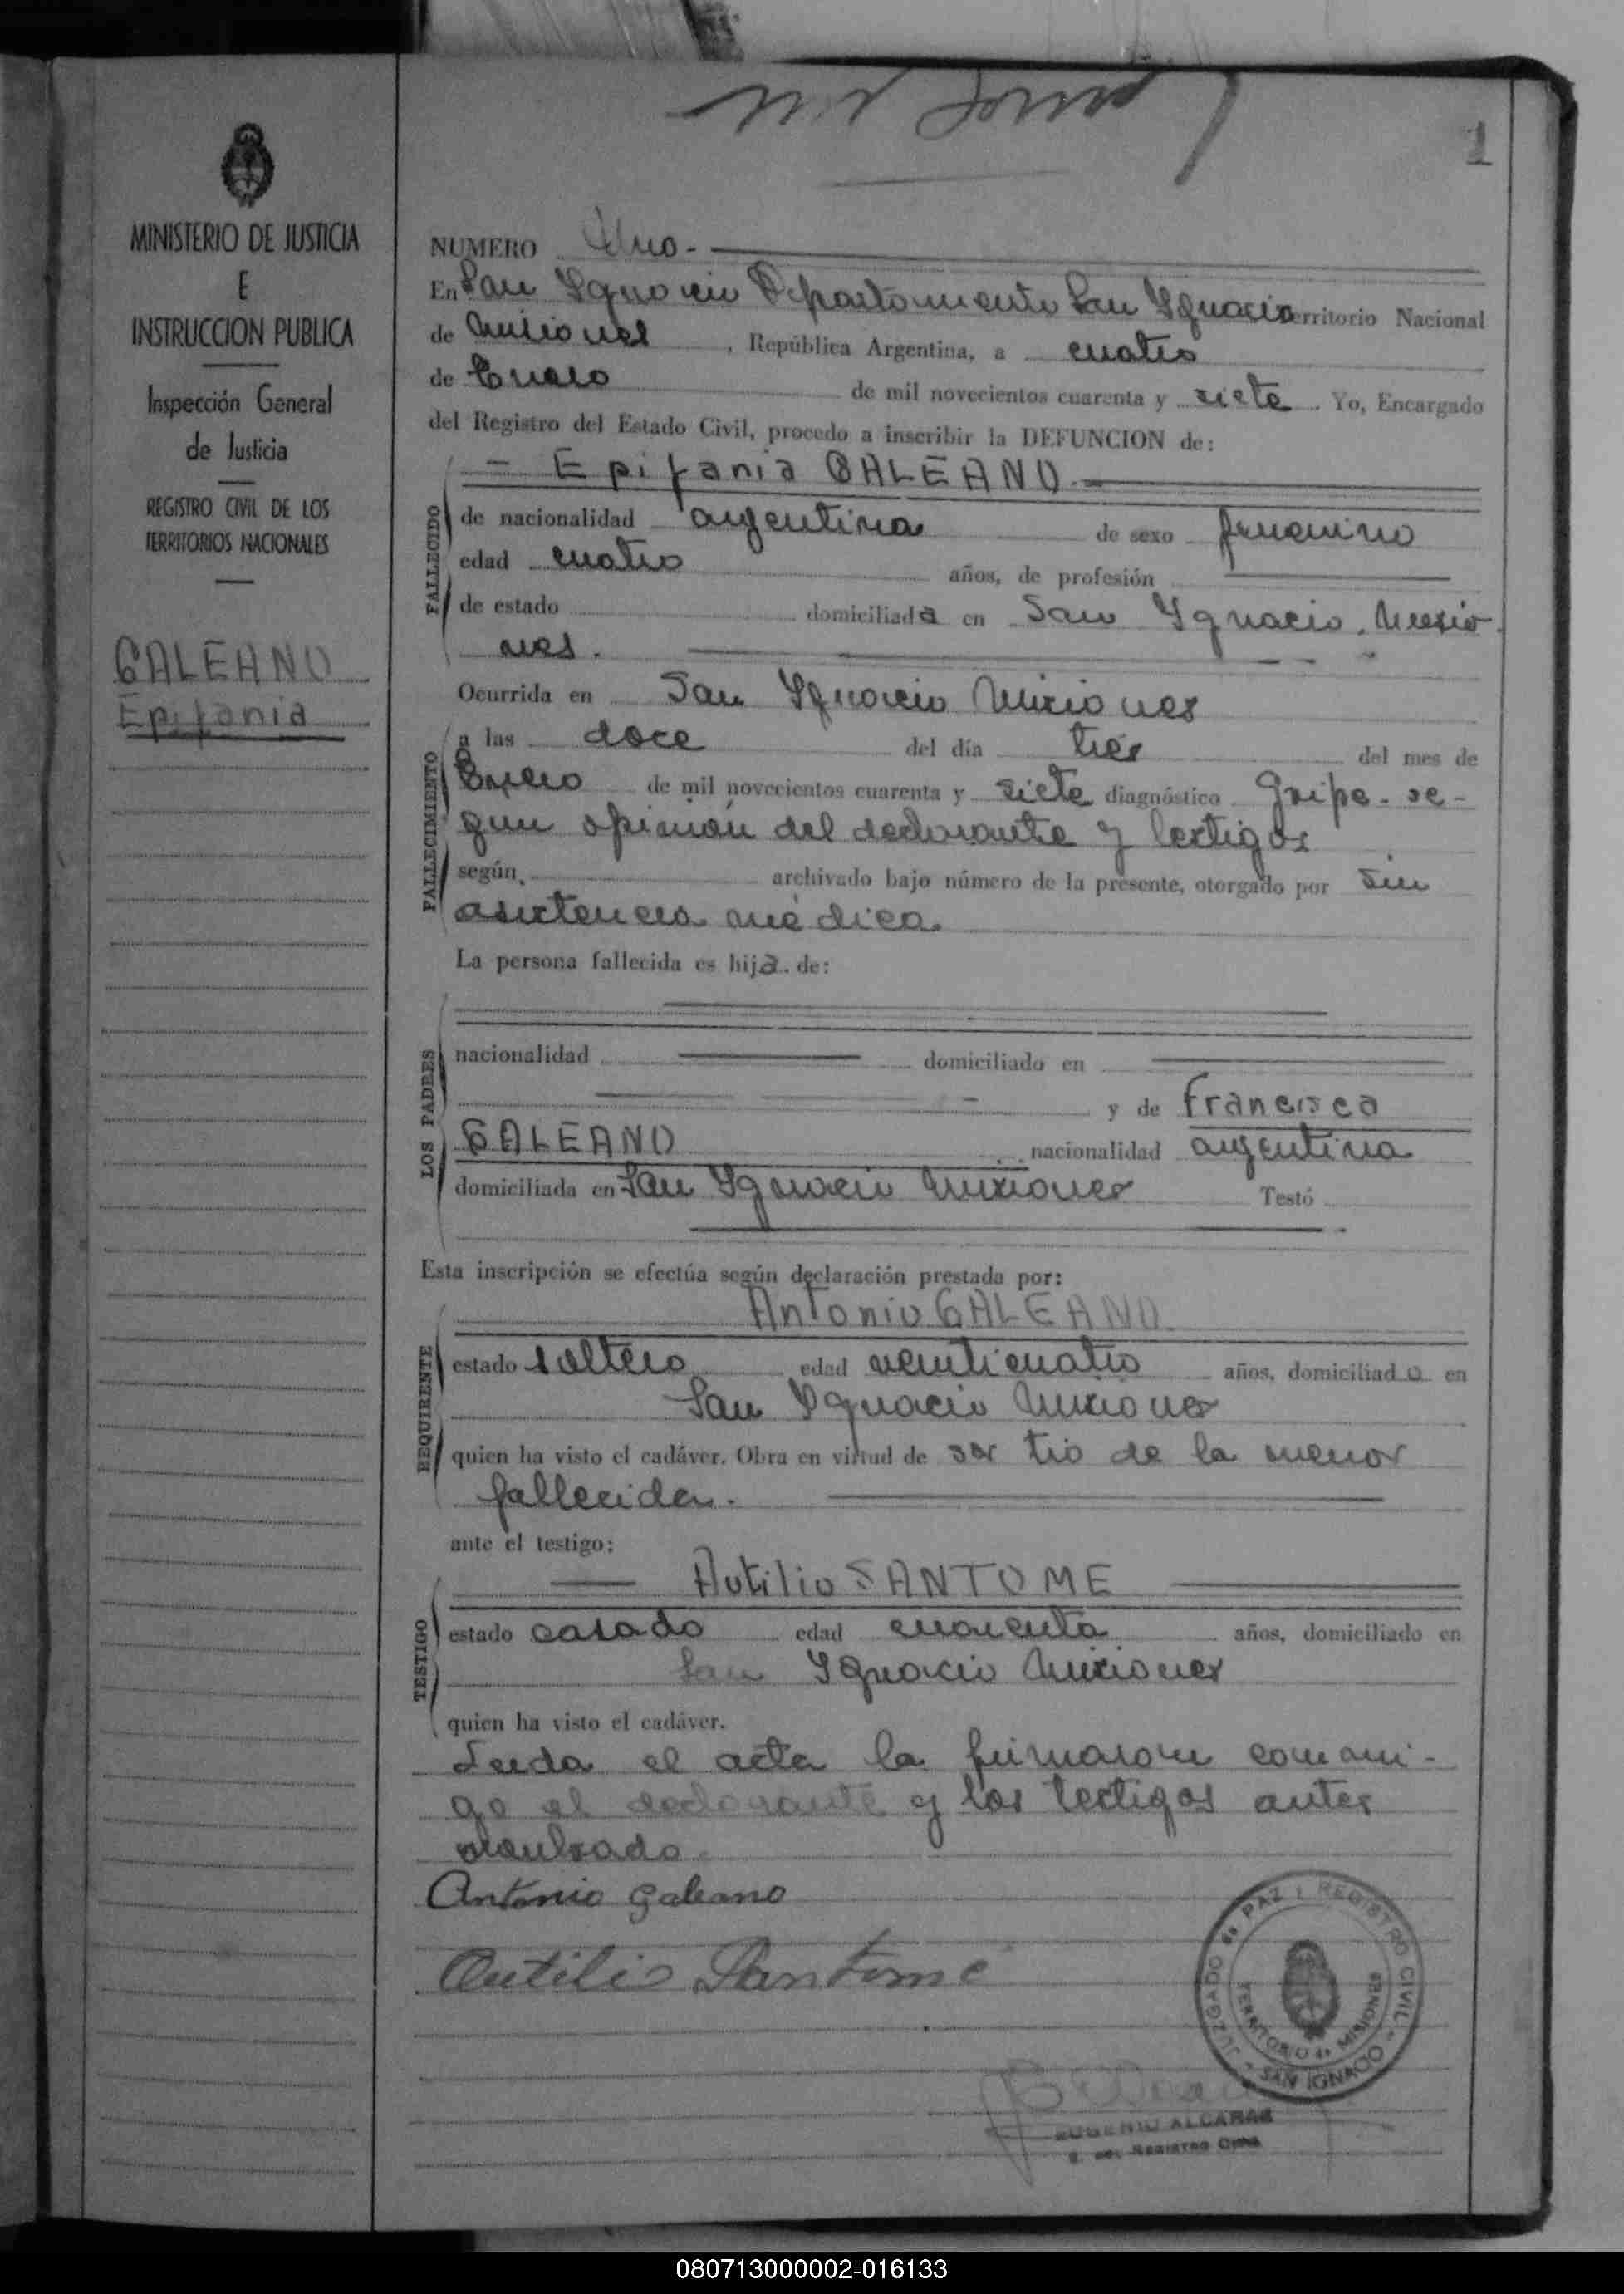 1
MINISTERIO DE JUSTICIA
E
INSTRUCCION PUBLICA
Inspección General
de Justicia
REGISTRO CIVIL DE LOS
TERRITORIOS NACIONALES
GALEANO
Epifania
NUMERO Uno.-
En San Ygnacio Departamento San Ygnacio Territorio Nacional
de Misiones, República Argentina, a cuatro
de Enero de mil novecientos cuarenta y siete. Yo, Encargado
del Registro del Estado Civil, procedo a inscribir la DEFUNCION de:
- Epifania GALEANO.-
FALLECIDO
de nacionalidad argentina de sexo femenino
edad cuatro años, de profesión
de estado domiciliada en San Ygnacio, Misio-
nes.
Ocurrida en San Ygnacio Misiones
FALLECIMIENTO
a las doce del día tres del mes de
Enero de mil novecientos cuarenta y siete diagnóstico Gripe- se-
gun opinión del declarante y testigos
según, archivado bajo número de la presente, otorgado por sin
asistencia médica.
La persona fallecida es hija. de:
LOS PADRES
nacionalidad domiciliado en
y de Francisca
GALEANO nacionalidad argentina
domiciliada en San Ygnacio Misiones Testó
Esta inscripción se efectúa según declaración prestada por:
Antonio GALEANO.
REQUIRENTE
estado soltero edad veinticuatro años, domiciliado en
San Ygnacio Misiones
quien ha visto el cadáver. Obra en virtud de ser tio de la menor
fallecida.
ante el testigo:
Autilio SANTOME
TESTIGO
estado casado edad cuarenta años, domiciliado en
San Ygnacio Misiones
quien ha visto el cadáver.
Leida el acta la firmaron conmi-
go el declarante y los testigos antes
Antonio Galeano
Autilio Santomé
JUZGADO de PAZ y REGISTRO CIVIL - SAN IGNACIO -
TERRITORIO de MISIONES
EUGENIO ALCARAZ
E. DEL REGISTRO CIVIL
080713000002-016133